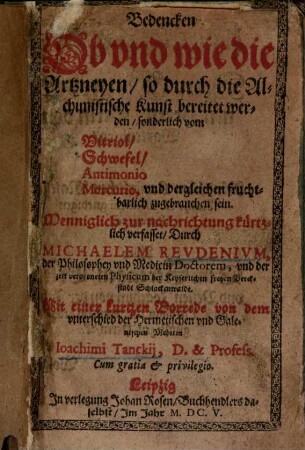 Bedencken
Ob vnd wie die
Artzneyen/ so durch die Al-
chimistische Kunst bereitet wer-
den/ sonderlich vom
Vitriol/
Schwefel/
Antimonio
Mercurio, vnd dergleichen frucht-
barlich zugebrauchen sein.
Menniglich zur nachrichtung kürtz-
lich verfasset/ Durch
MICHAELEM REVDENIVM,
der Philosophey vnd Medicin Doctorem, vnd der
zeit verordneten Physicum der Keyserlichen freyen Berck-
stadt Schlackenwalde.
Mit einer kurtzen Vorrede von dem
vnterschied der Hermetischen vnd Gale-
nischen Medicin
Ioachimi Tanckij, D. & Profess.
Cum gratia & privilegio.
Leipzig
In verlegung Johan Rosen/ Buchhendlers da-
selbst/ Im Jahr M. DC. V.